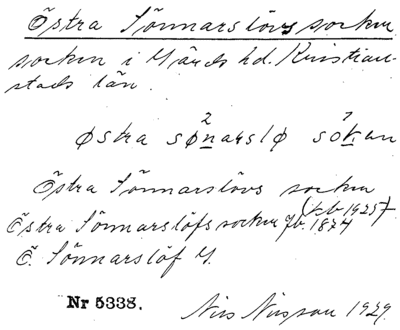 Östra Sönnarslövs socken
socken i Gärds hd. Kristian-
stads län.
2 1
østra sønarslø sokən
Östra Sönnarslövs socken
(jb 1925)
Östra Sönnarslöfs socken gb. 1874
Ö. Sönnarslöf G.
Nr 5338. Nils Nilsson 1929